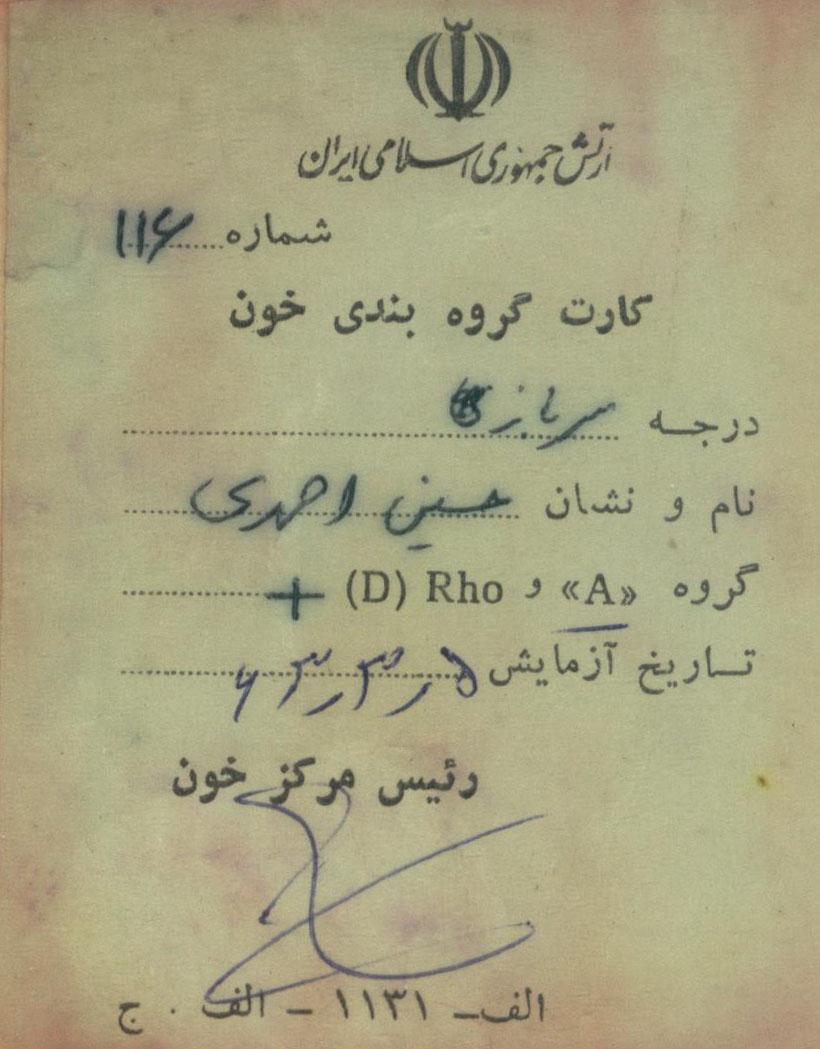 ارتش جمهوری اسلامی ایران
شماره ۱۱۶
کارت گروه بندی خون
درجه سرباز
نام و نشان حسین احمدی
گروه «A» و Rho (D) +
تاریخ آزمایش
رئیس مرکز خون
الف - ۱۱۳۱ - الف . ج